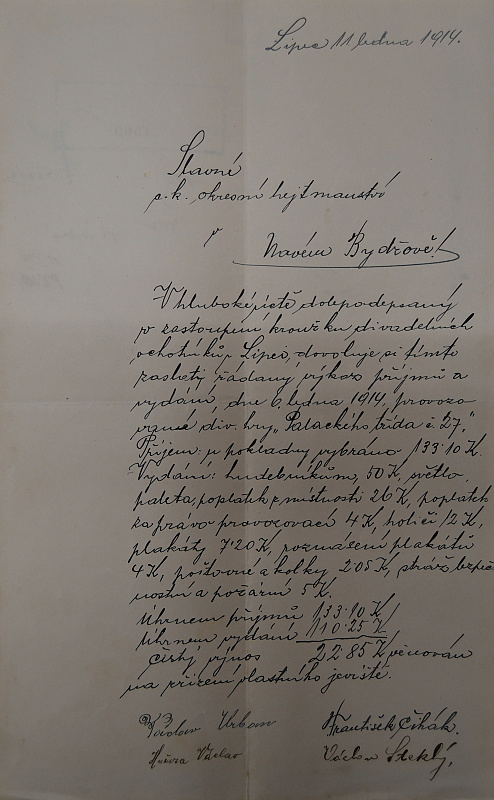 Lipec 11 ledna 1914.
Slavné
c. k. okresní hejtmanství
v
Novém Bydžově!
V hluboké úctě dolepodepsaný
v zastoupení kroužku divadelních
ochotníků v Lipci, dovoluje si tímto
zaslati žádaný výkaz příjmů a
vydání, dne 6. ledna 1914, provozo
vané div. hry „Palackého třída č. 27."
Příjem: u pokladny vybráno 133·10 K.
Vydání: hudebníkům, 50 K, světlo
paleta, poplatek z místnosti 26 K, poplatek
za právo provozovací 4 K, holiči 12 K,
plakáty 7·20 K, roznášení plakátů
4 K, poštovné a kolky 2·05 K, stráž bezpeč
nostní a požární 5 K.
Úhrnem příjmů 133·10 K
Úhrnem vydání 110·25 K
Čistý výnos 22·85 K věnován
na zřízení vlastního jeviště.
Urban František Čihák.
Václav Václav Steklý,